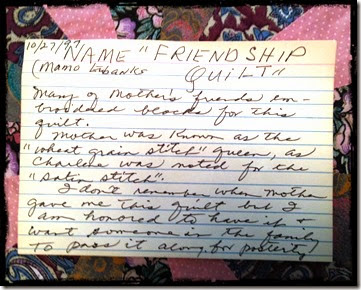 10/27/97 NAME "FRIENDSHIP
(Mamo Eubanks QUILT"
Many of Mother's friends em-
broidered blocks for this
quilt.
Mother was known as the
"wheat grain stitch" queen, as
Charlene was noted for the
"Satin stitch".
I don't remember when Mother
gave me this quilt but I
am honored to have it &
want someone in the family
to pass it along for posterity